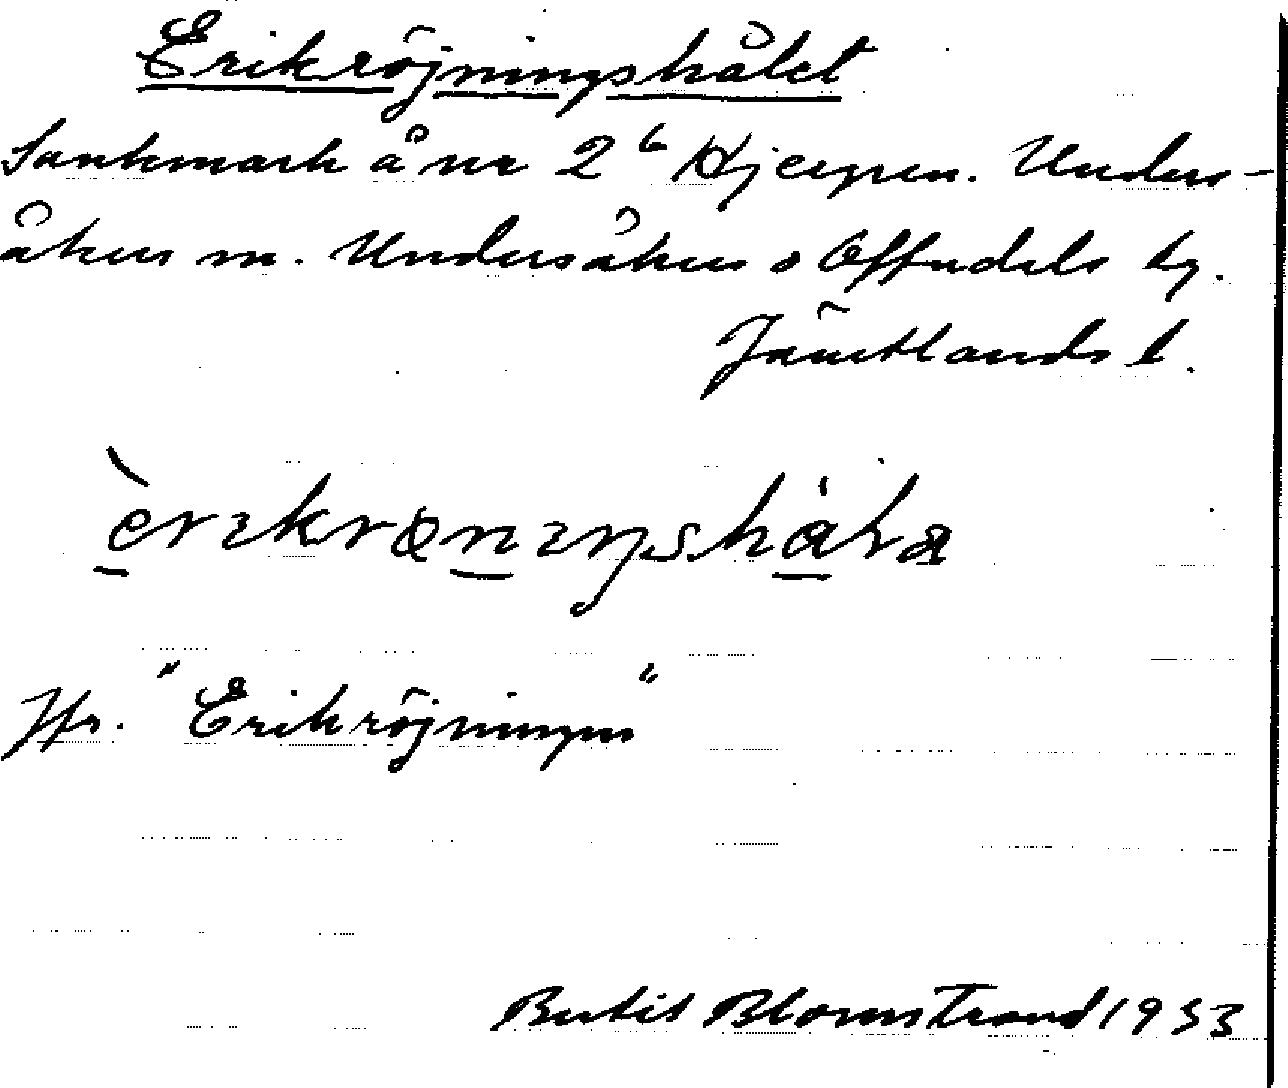 Erikröjningshålet
Sankmark å nr 2⁶ Hjerpen. Unders-
åkers sn. Undersåkers o Offerdals tg.
Jämtlands l.
Jfr. "Erikröjningen"
Bertil Blomstrand 1953